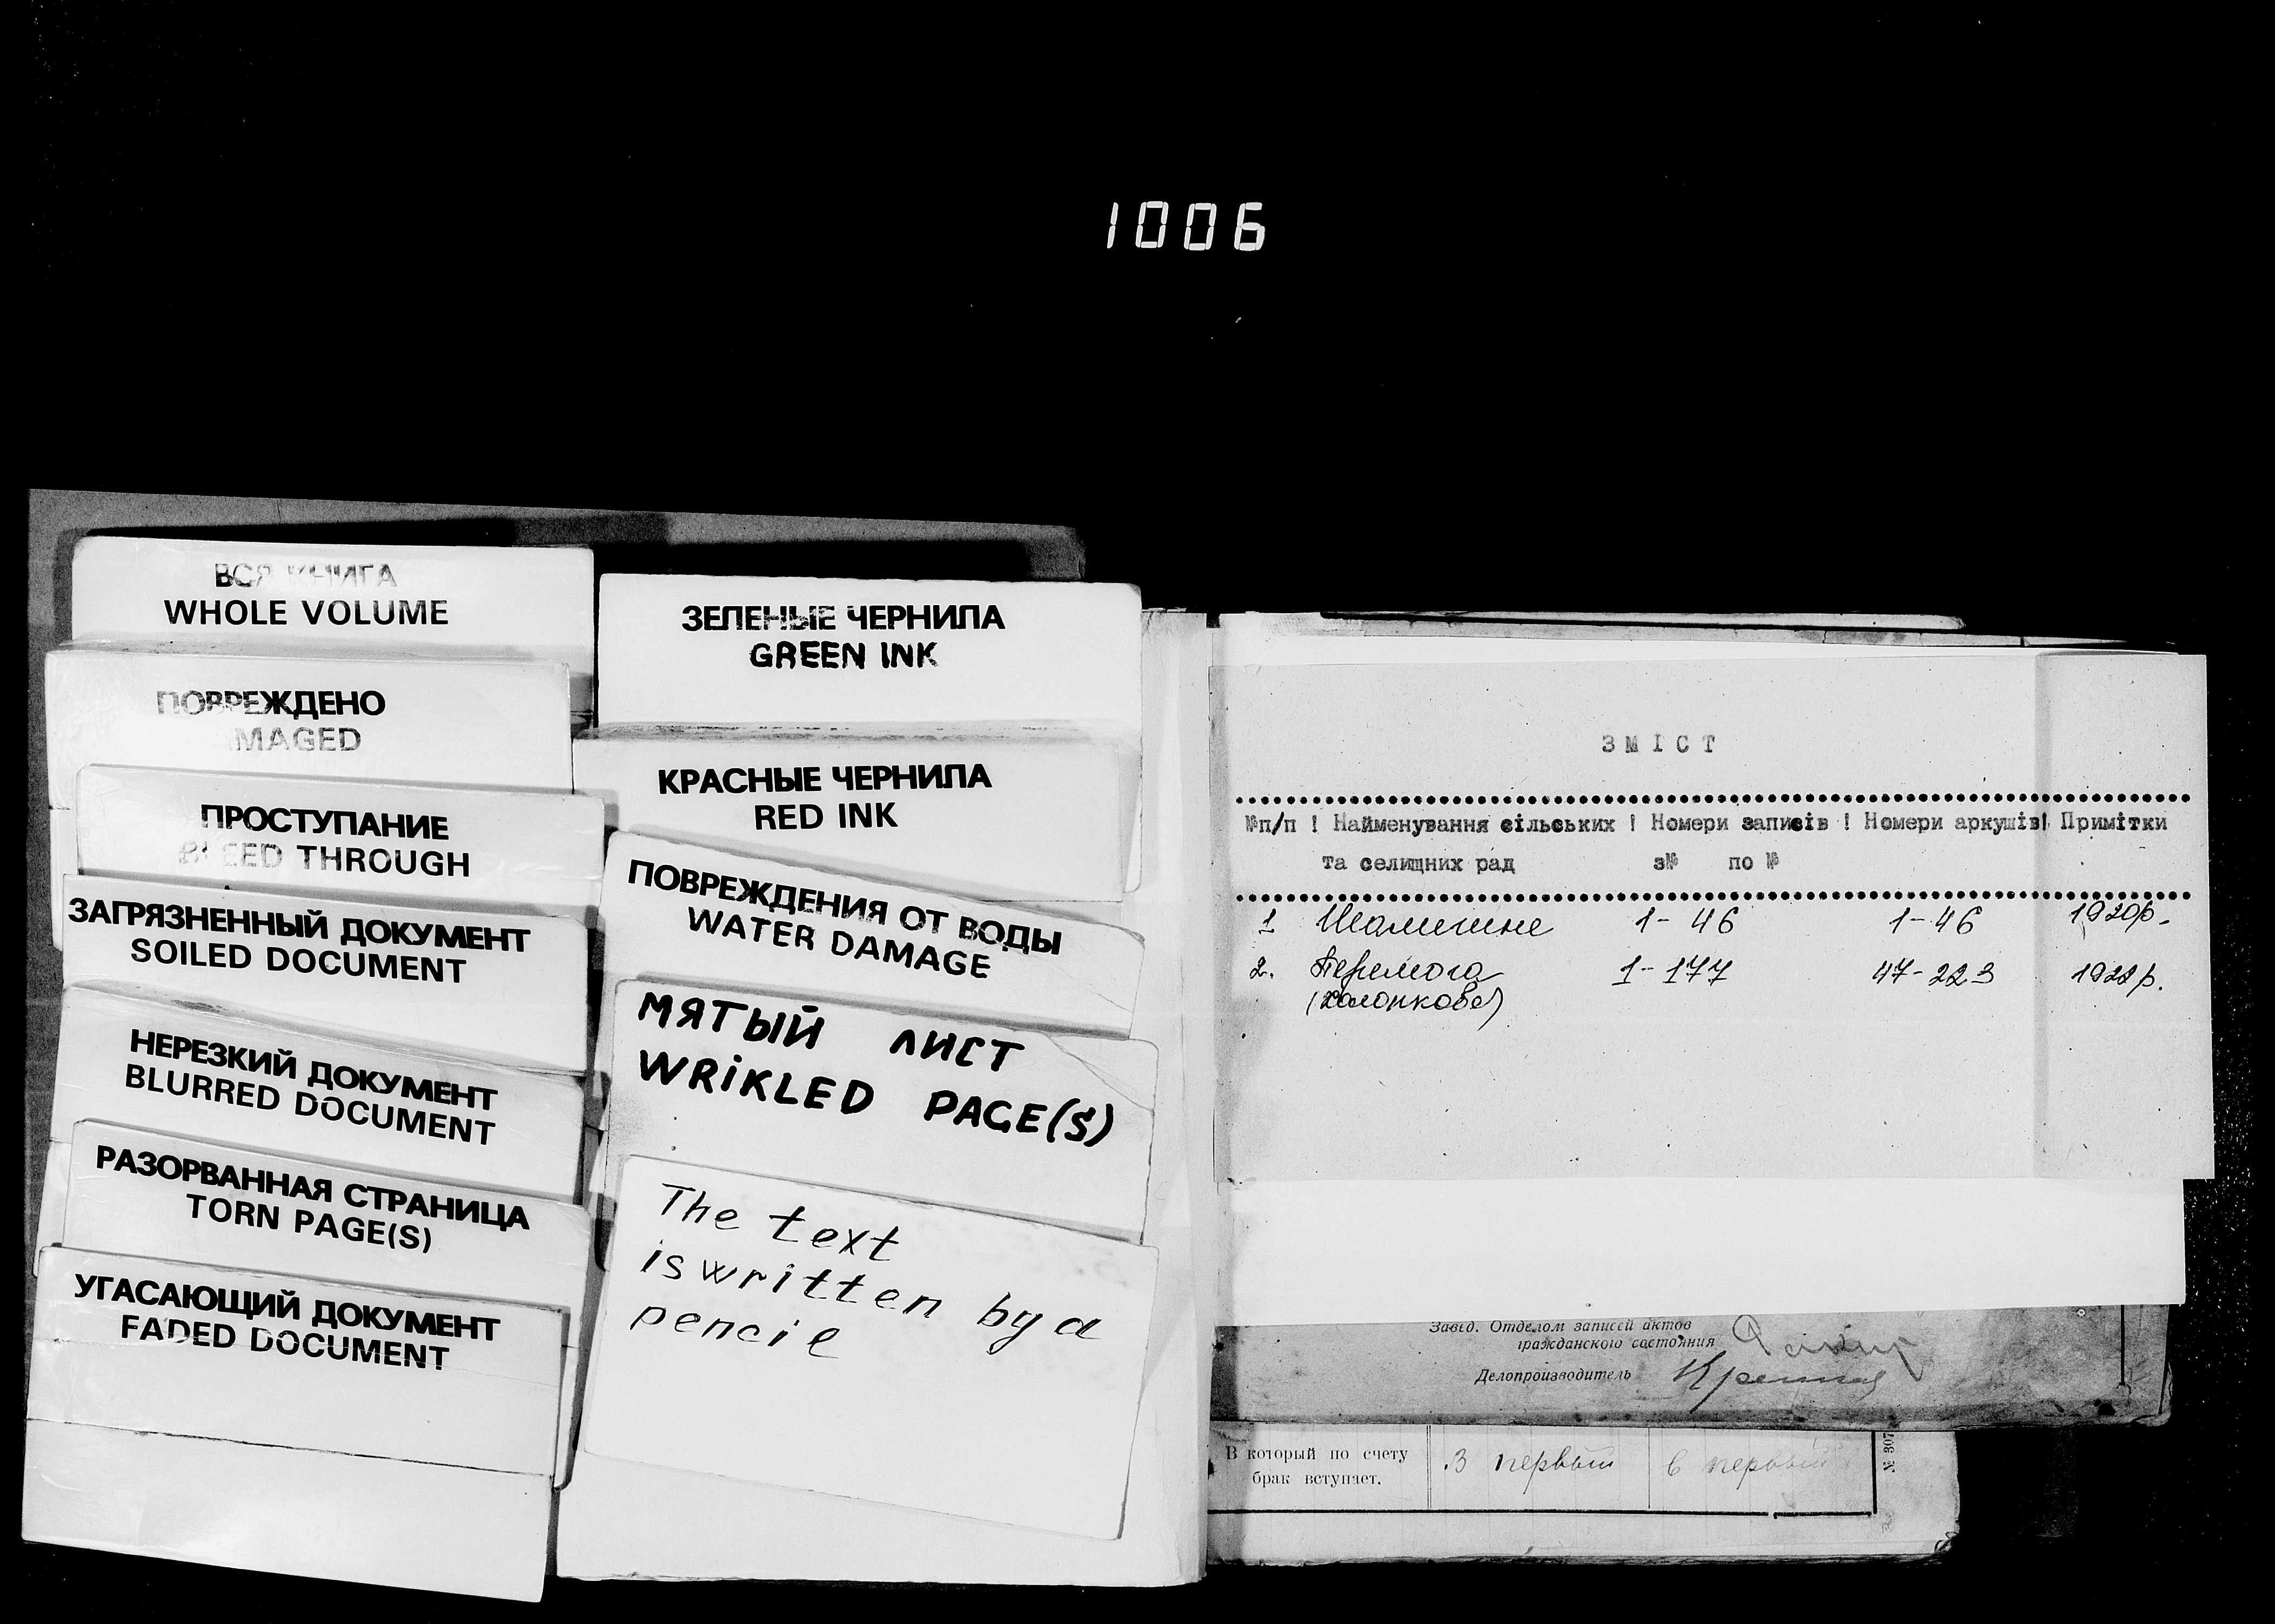 1006
ВСЯ КНИГА
WHOLE VOLUME
ПОВРЕЖДЕНО
MAGED
ПРОСТУПАНИЕ
BLEED THROUGH
ЗАГРЯЗНЕННЫЙ ДОКУМЕНТ
SOILED DOCUMENT
НЕРЕЗКИЙ ДОКУМЕНТ
BLURRED DOCUMENT
РАЗОРВАННАЯ СТРАНИЦА
TORN PAGE(S)
УГАСАЮЩИЙ ДОКУМЕНТ
FADED DOCUMENT
ЗЕЛЕНЫЕ ЧЕРНИЛА
GREEN INK
КРАСНЫЕ ЧЕРНИЛА
RED INK
ПОВРЕЖДЕНИЯ ОТ ВОДЫ
WATER DAMAGE
МЯТЫЙ ЛИСТ
WRiKLED PAGE(S)
The text
is written by a
pencil
ЗМІСТ
№п/п ! Найменування сільських ! Номери записів ! Номери аркушів! Примітки
та селищних рад з№ по №
1 Шалигине 1-46 1-46 1920р.
2. Перемога 1-177 47-223 1922р.
Завед. Отделом записей актов
гражданского состояния
Делопроизводитель
В который по счету В первый в первый
брак вступает.
№ 307